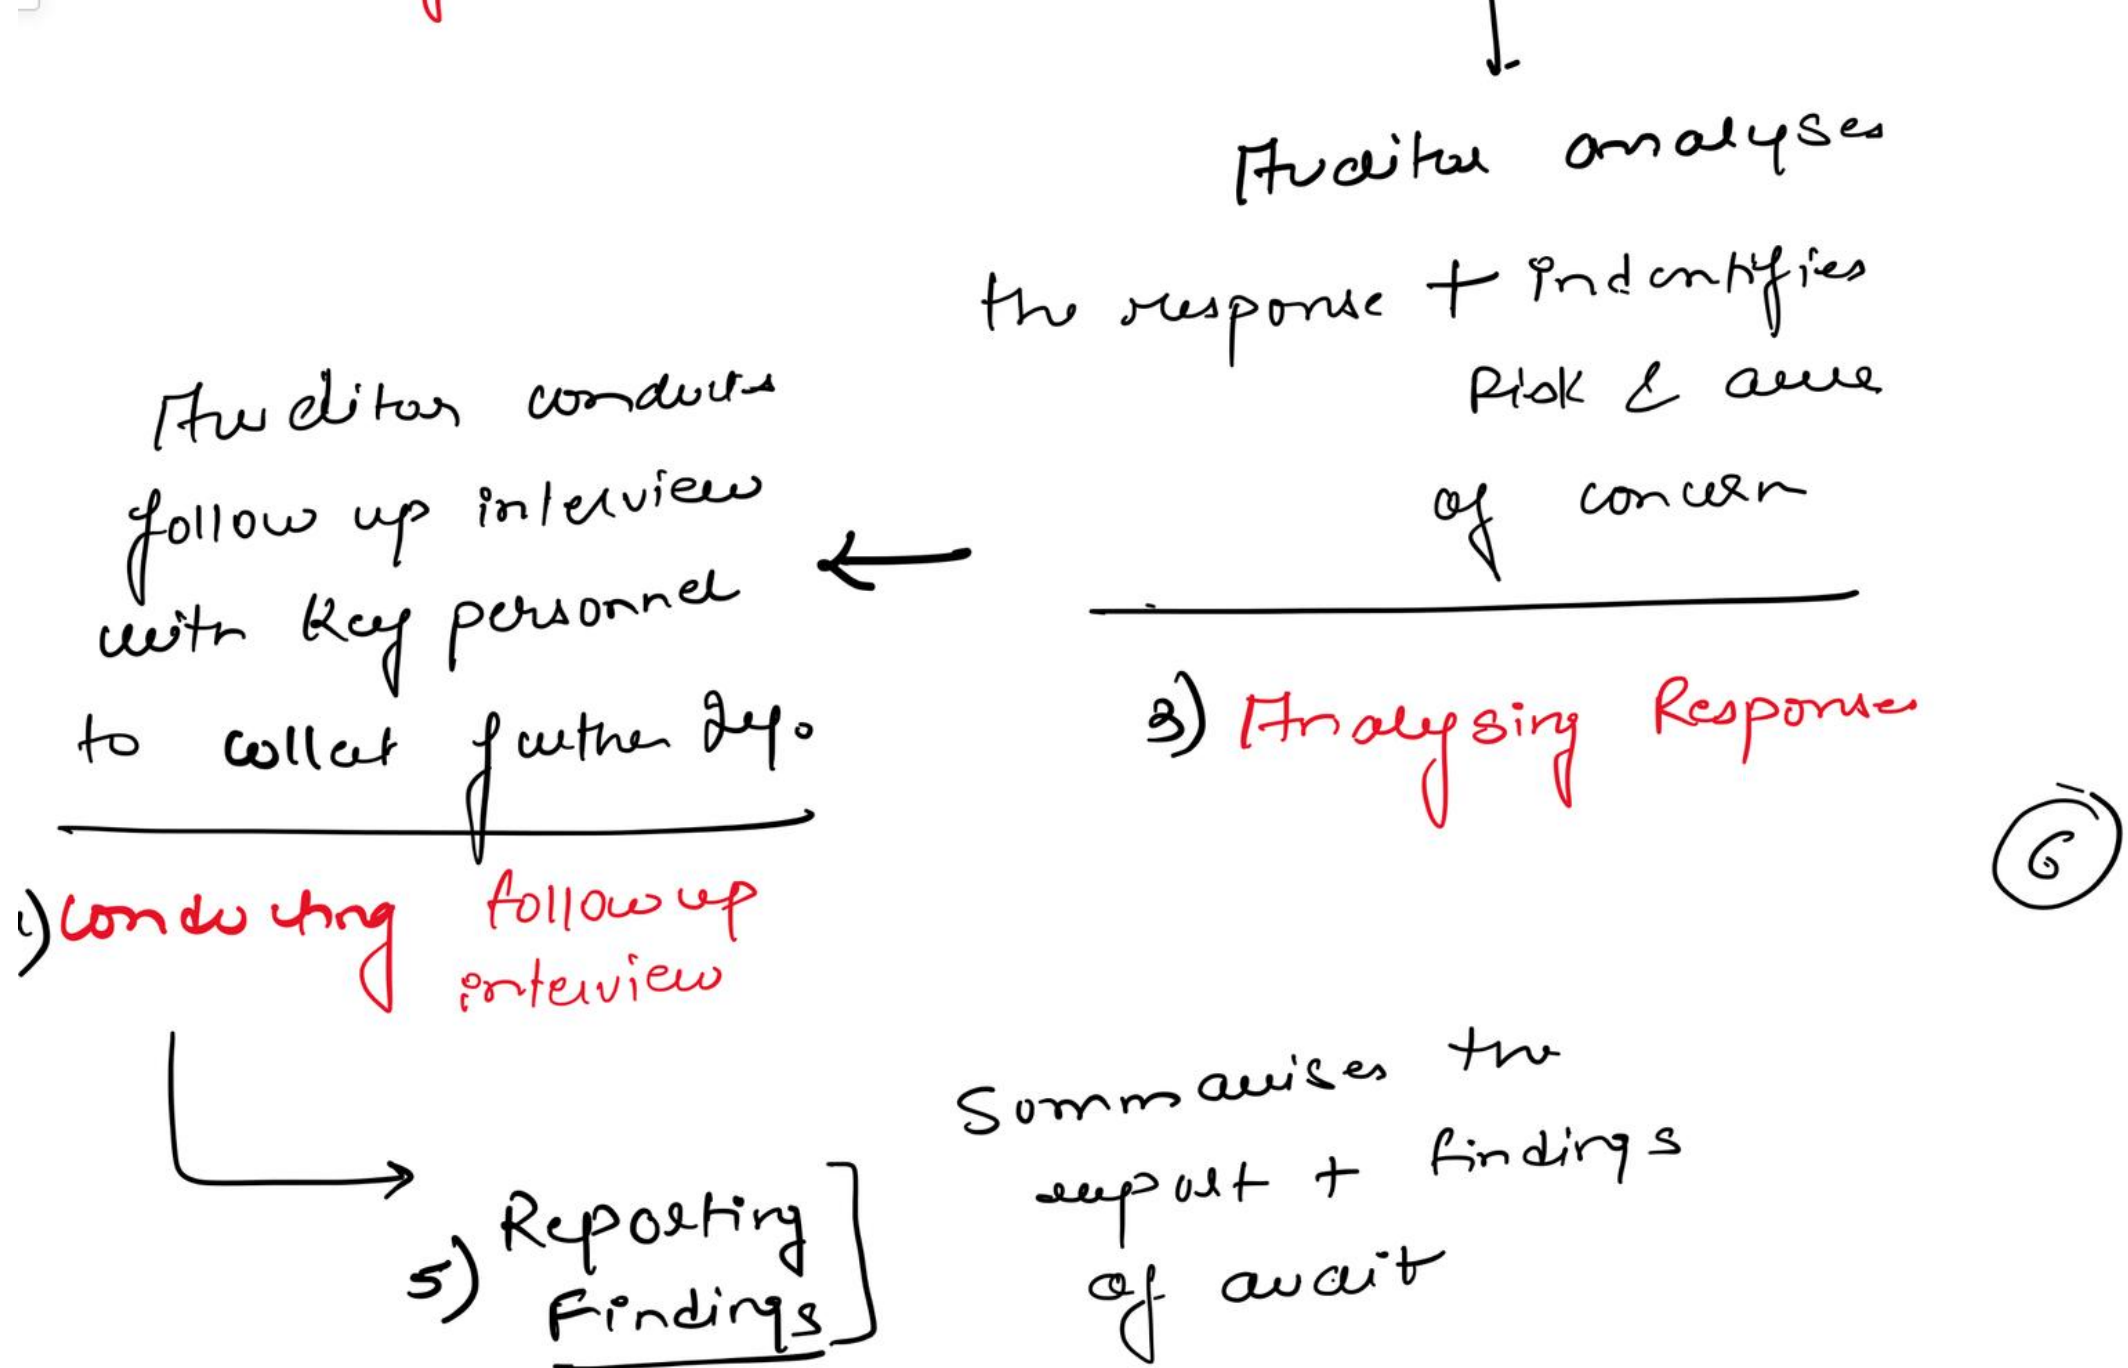 Auditor analyses
the response + indentifies
Risk & area
of concern
3) Analysing Response
Auditor conducts
follow up interview
with key personnel
to collect further
) conducting follow up
interview
6
5) Reporting
Findings
Sommarises the
report + findings
of audit